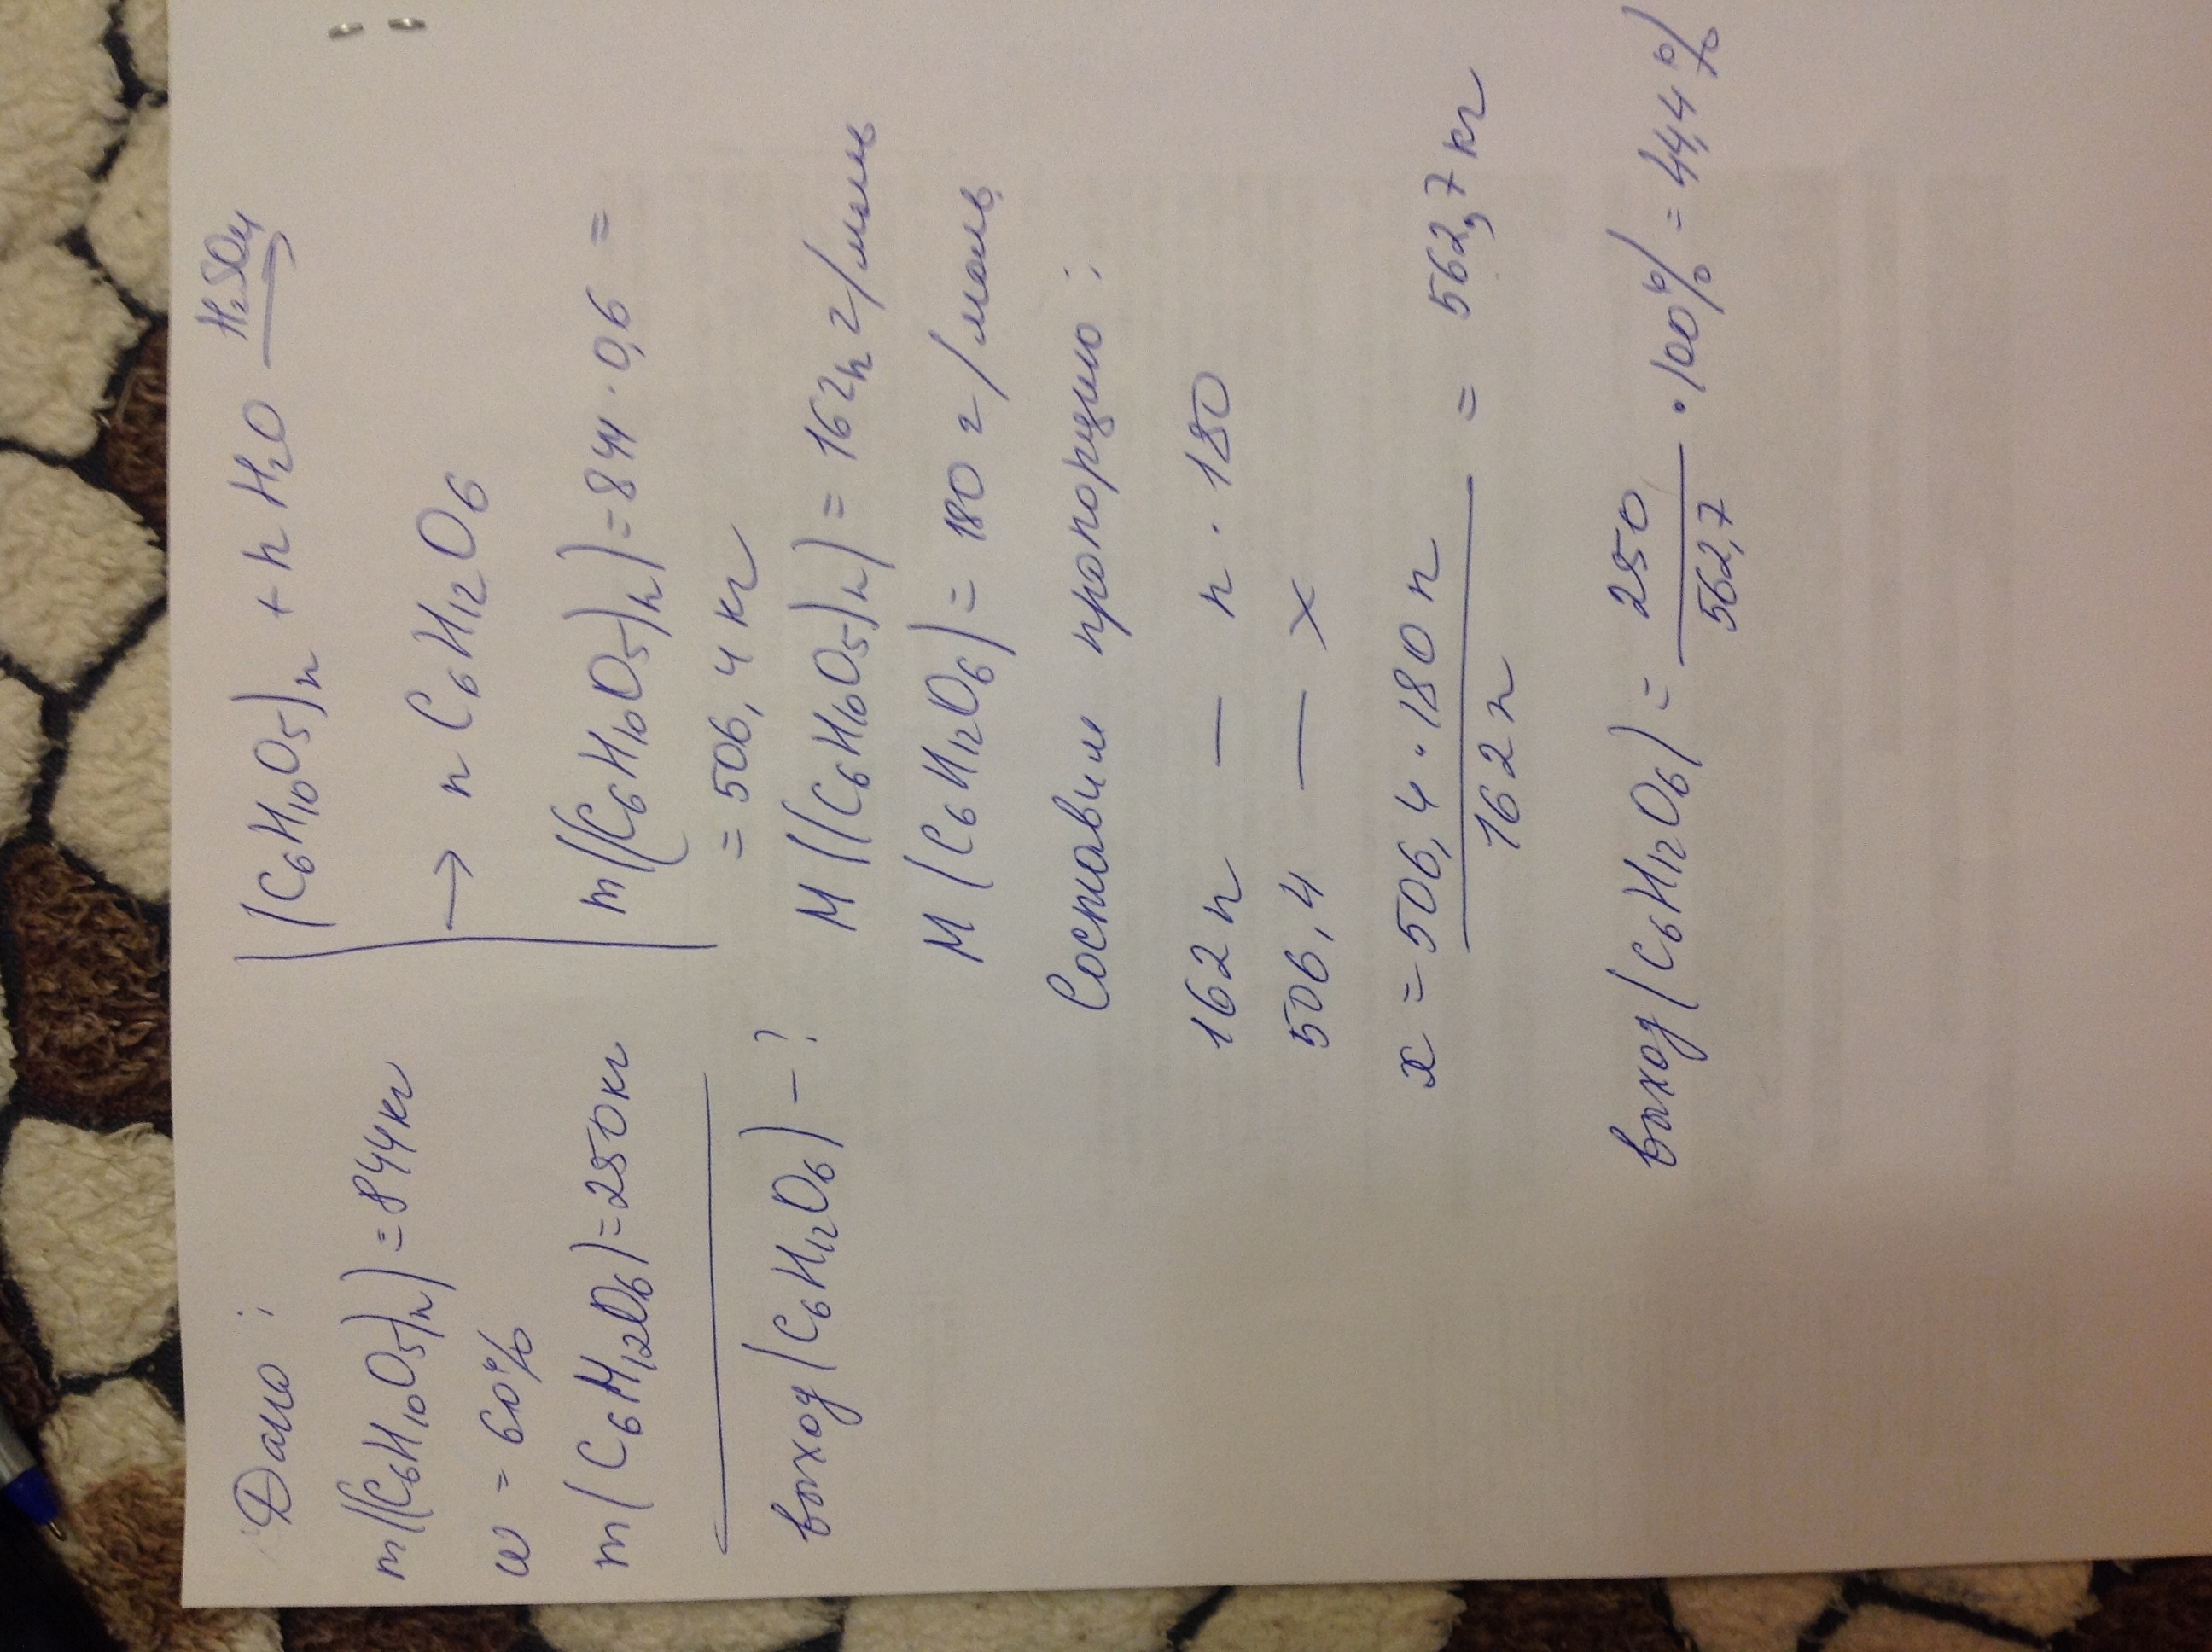 Дано:
m((C₆H₁₀O₅)n) = 844 кг
ω = 60%
m(C₆H₁₂O₆) = 250 кг
выход (C₆H₁₂O₆) – ?
(C₆H₁₀O₅)n + n H₂O H₂SO₄
→ n C₆H₁₂O₆
m((C₆H₁₀O₅)n) = 844 · 0,6 =
= 506,4 кг
M((C₆H₁₀O₅)n) = 162n г/моль
M(C₆H₁₂O₆) = 180 г/моль
Составим пропорцию:
162n — n · 180
506,4 — x
x = 506,4 · 180n / 162n = 562,7 кг
выход (C₆H₁₂O₆) = 250 / 562,7 · 100% = 44,4%